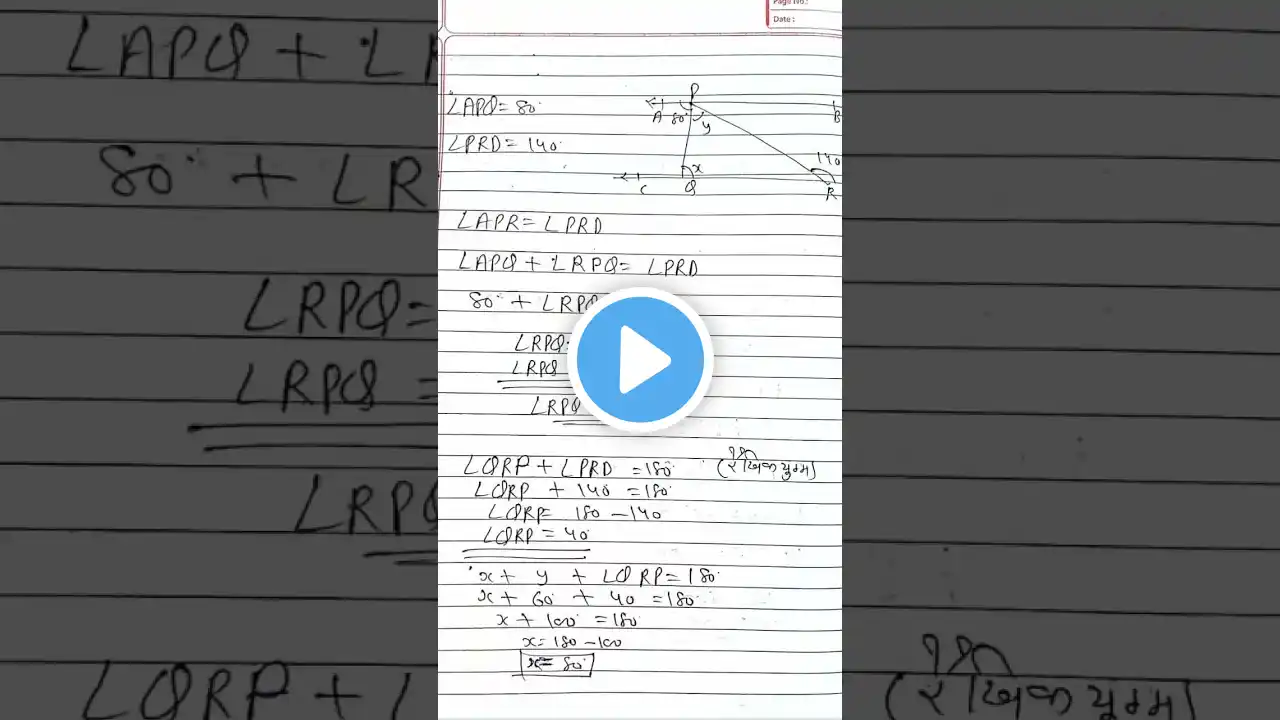 Page No.:
Date:
∠APQ = 80°
∠PRD = 140°
P
A 80° y B
x 140
C Q R
∠APR = ∠PRD
∠APQ + ∠RPQ = ∠PRD
80° + ∠RPQ
∠RPQ
∠RPQ
∠RPQ
∠QRP + ∠PRD = 180° (रैखिक युग्म)
∠QRP + 140 = 180°
∠QRP = 180 - 140
∠QRP = 40°
x + y + ∠QRP = 180°
x + 60° + 40 = 180°
x + 100° = 180°
x = 180 - 100
x = 80°
∠APQ + ∠R
80° + ∠R
∠RPQ =
∠RPQ =
∠RPQ
∠QRP + ∠
(रैखिक युग्म)